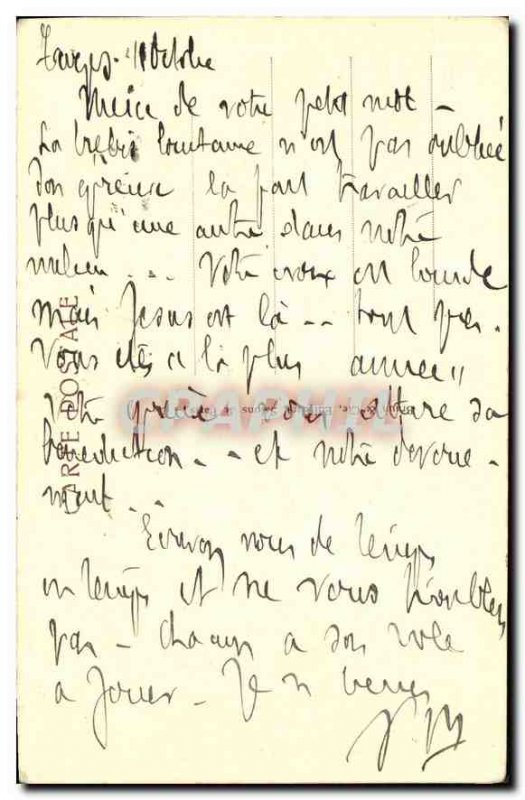 11 Octobre
Merci de votre petit mot -
La brebis lointaine n'est pas oubliée
Son la fait travailler
plus qu'une autre dans notre
milieu ... Votre croix est lourde
mais Jésus est là -- tout près.
Vous êtes "la plus aimée"
Votre vous assure sa
bénédiction -- et notre dévoue-
ment --
Ecrivez nous de temps
en temps et ne vous troublez
pas - chacun a son rôle
à jouer - Je
CARTE POSTALE
CPAPHIL